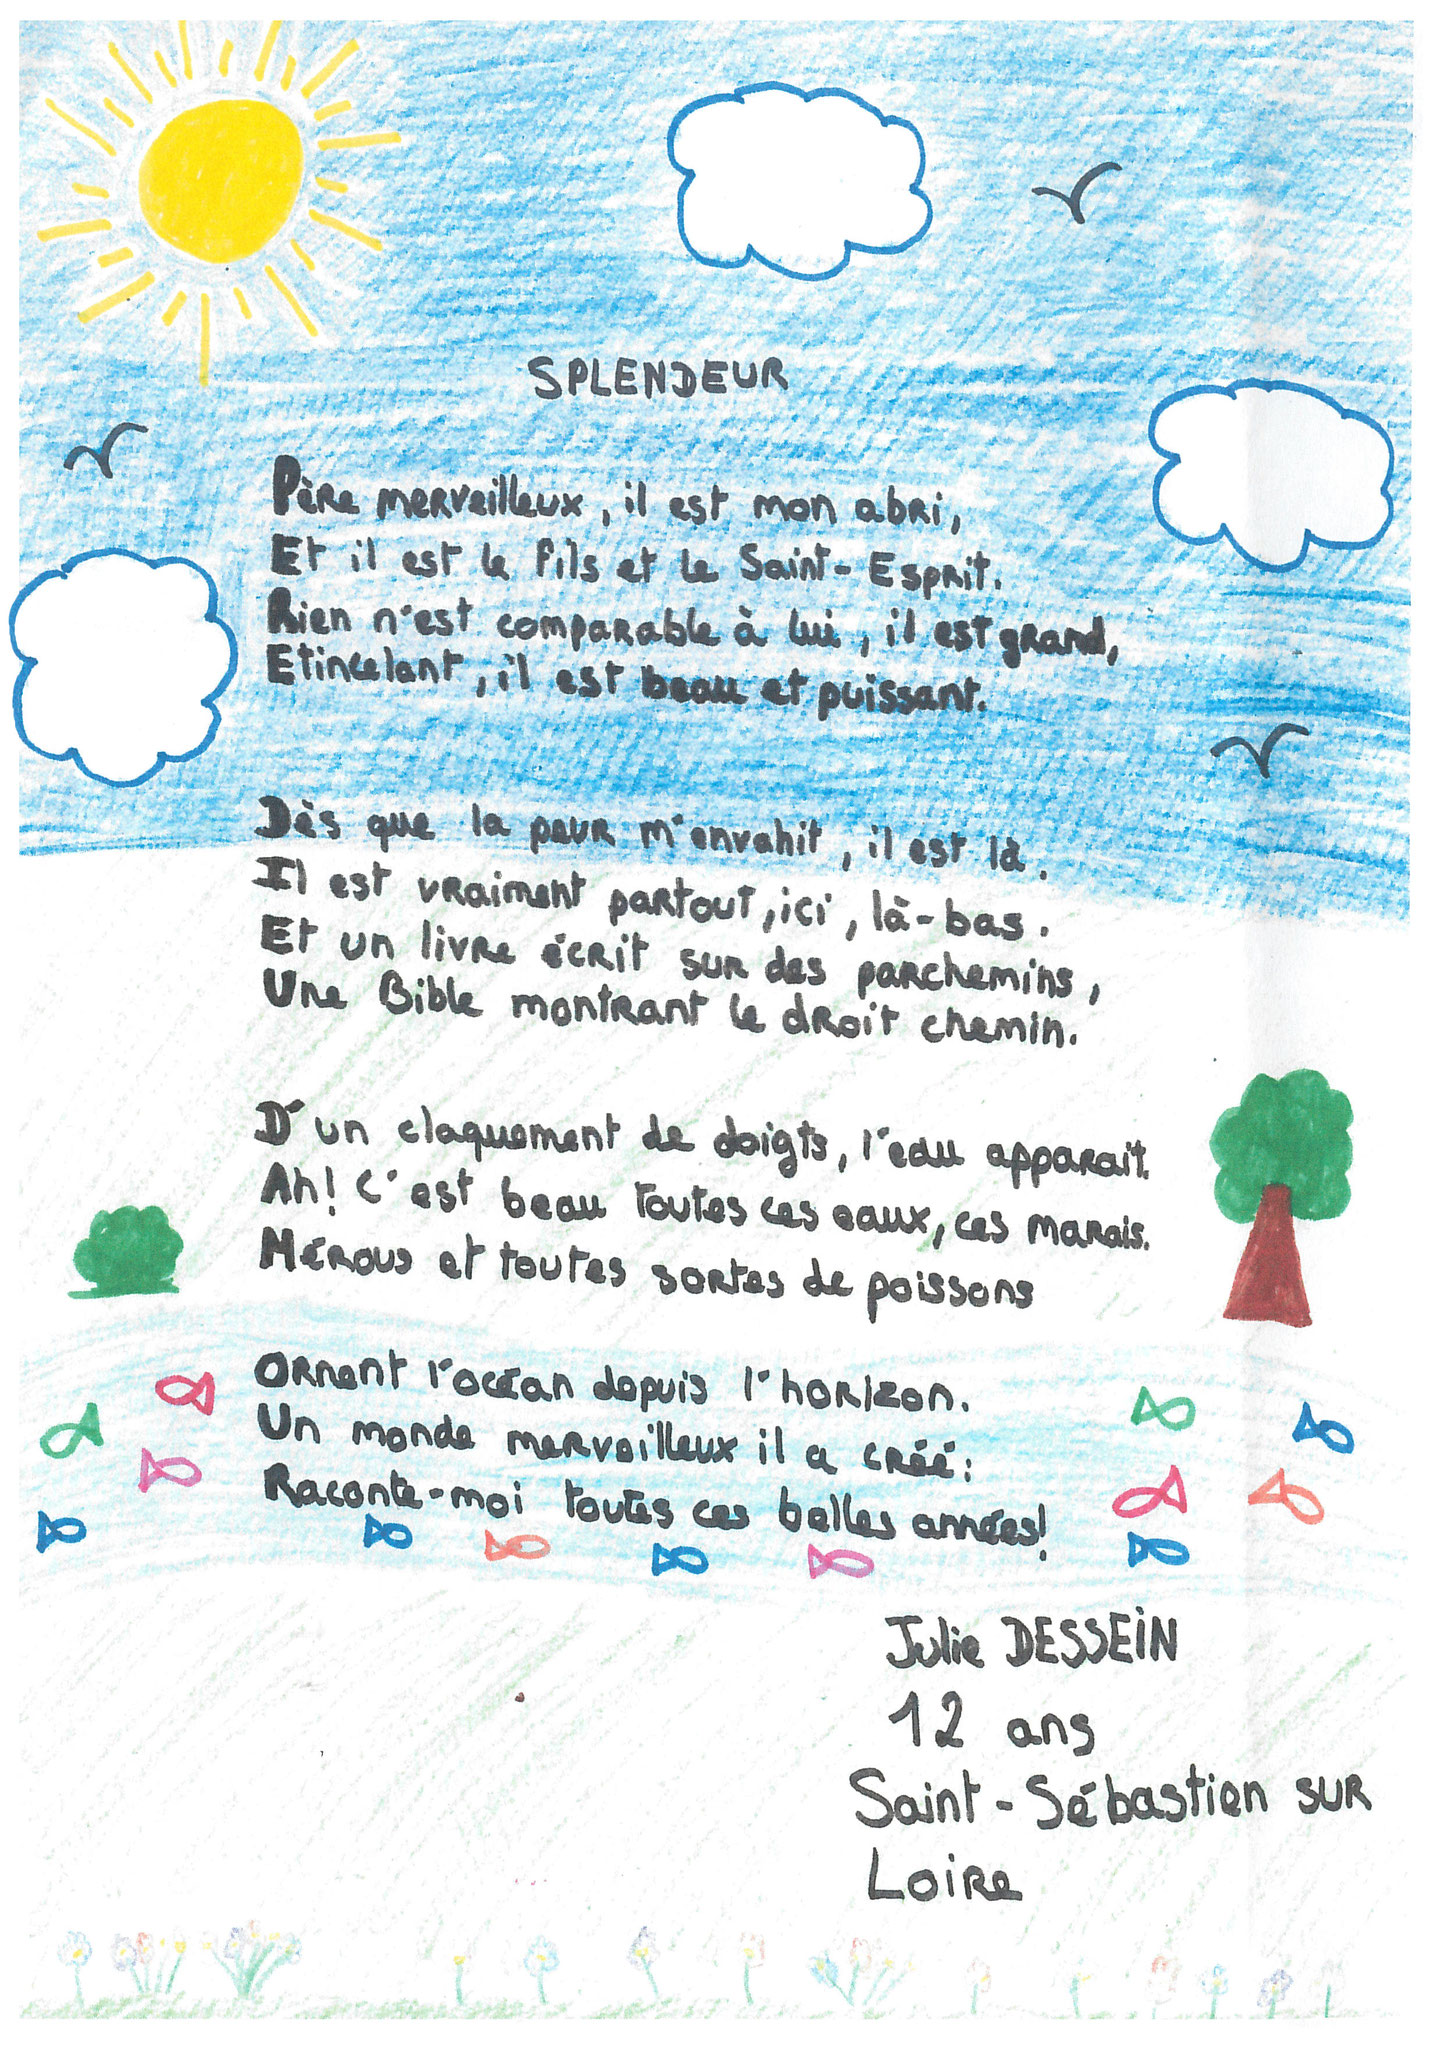 SPLENDEUR
Père merveilleux, il est mon abri,
Et il est le Fils et le Saint-Esprit.
Rien n'est comparable à lui, il est grand,
Etincelant, il est beau et puissant.
Dès que la peur m'envahit, il est là.
Il est vraiment partout, ici, là-bas.
Et un livre écrit sur des parchemins,
Une Bible montrant le droit chemin.
D'un claquement de doigts, l'eau apparait.
Ah! C'est beau toutes ces eaux, ces marais.
Mérous et toutes sortes de poissons
Ornent l'océan depuis l'horizon.
Un monde merveilleux il a créé:
Raconte-moi toutes ces belles années!
Julie DESSEiN
12 ans
Saint-Sébastien sur
Loire